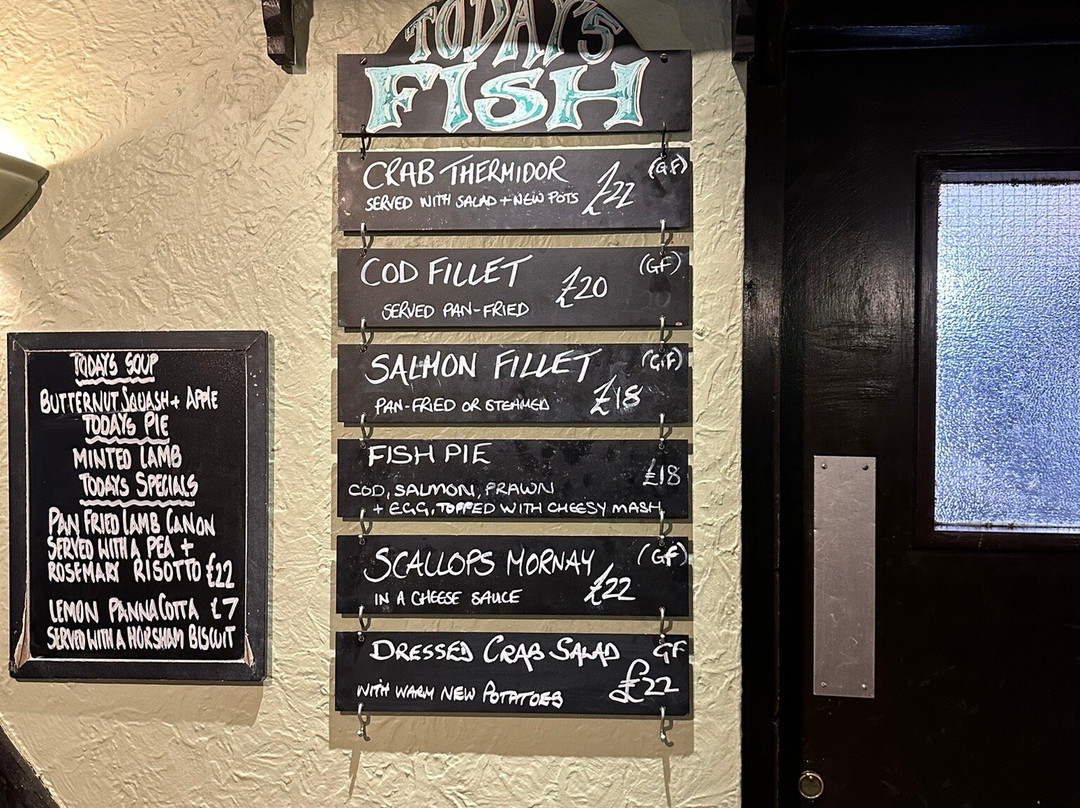 TODAYS SOUP
BUTTERNUT SQUASH + APPLE
TODAYS PIE
MINTED LAMB
TODAYS SPECIALS
PAN FRIED LAMB CANON
SERVED WITH A PEA +
ROSEMARY RISOTTO £22
LEMON PANNACOTTA £7
SERVED WITH A HORSHAM BISCUIT
TODAY'S
FISH
CRAB THERMIDOR (GF)
SERVED WITH SALAD + NEW POTS £22
COD FILLET (GF)
£20
SERVED PAN-FRIED
SALMON FILLET (GF)
PAN-FRIED OR STEAMED £18
FISH PIE
£18
COD, SALMON, PRAWN
+ EGG, TOPPED WITH CHEESY MASH
SCALLOPS MORNAY (GF)
IN A CHEESE SAUCE £22
DRESSED CRAB SALAD GF
WITH WARM NEW POTATOES £22